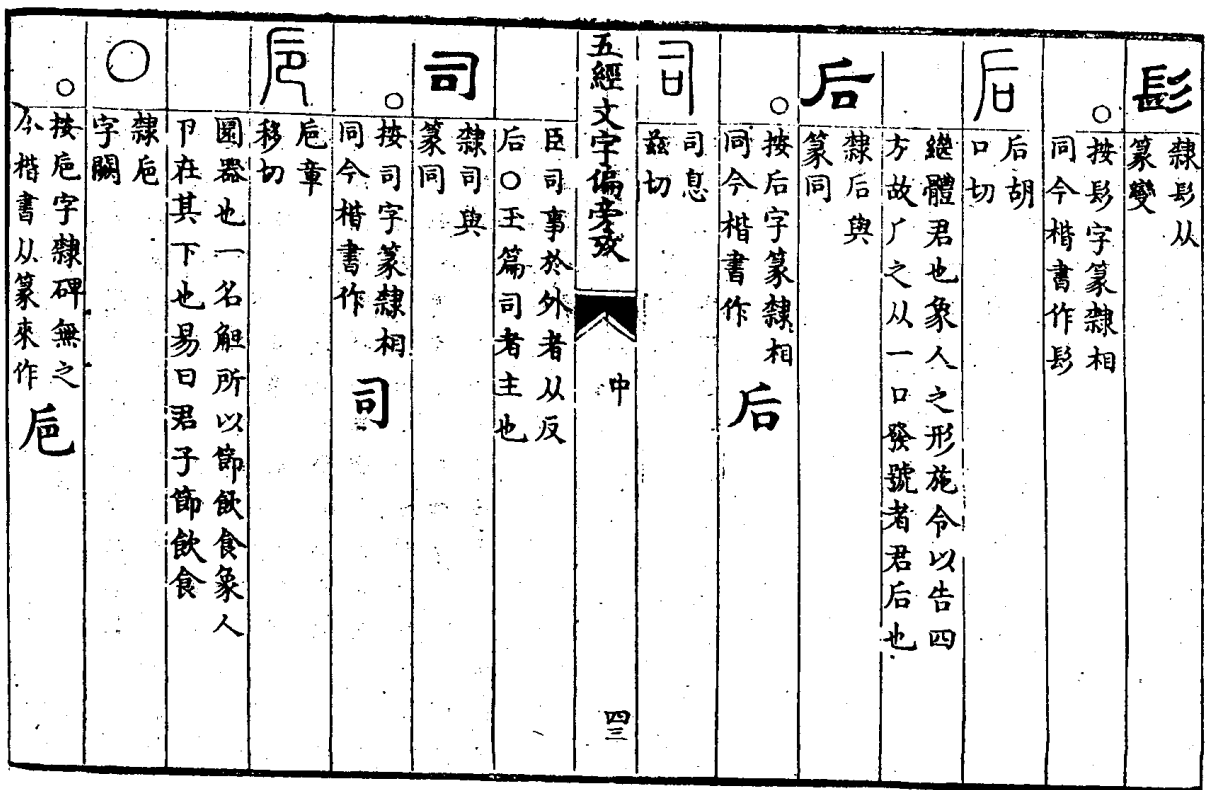 髟
隸髟从
篆變
○
按髟字篆隸相
同今楷書作髟
后
后胡
口切
繼體君也象人之形施令以告四
方故厂之从一口發號者君后也
后
隸后與
篆同
○
按后字篆隸相
同今楷書作
后
司
司息
兹切
五經文字偏旁攷
中
四三
臣司事於外者从反
后○玉篇司者主也
司
隸司與
篆同
○
按司字篆隸相
同今楷書作
司
巵
巵章
移切
圜器也一名觛所以節飲食象人
卪在其下也易曰君子節飲食
○
隸巵
字闕
○
按巵字隸碑無之
今楷書从篆來作
巵